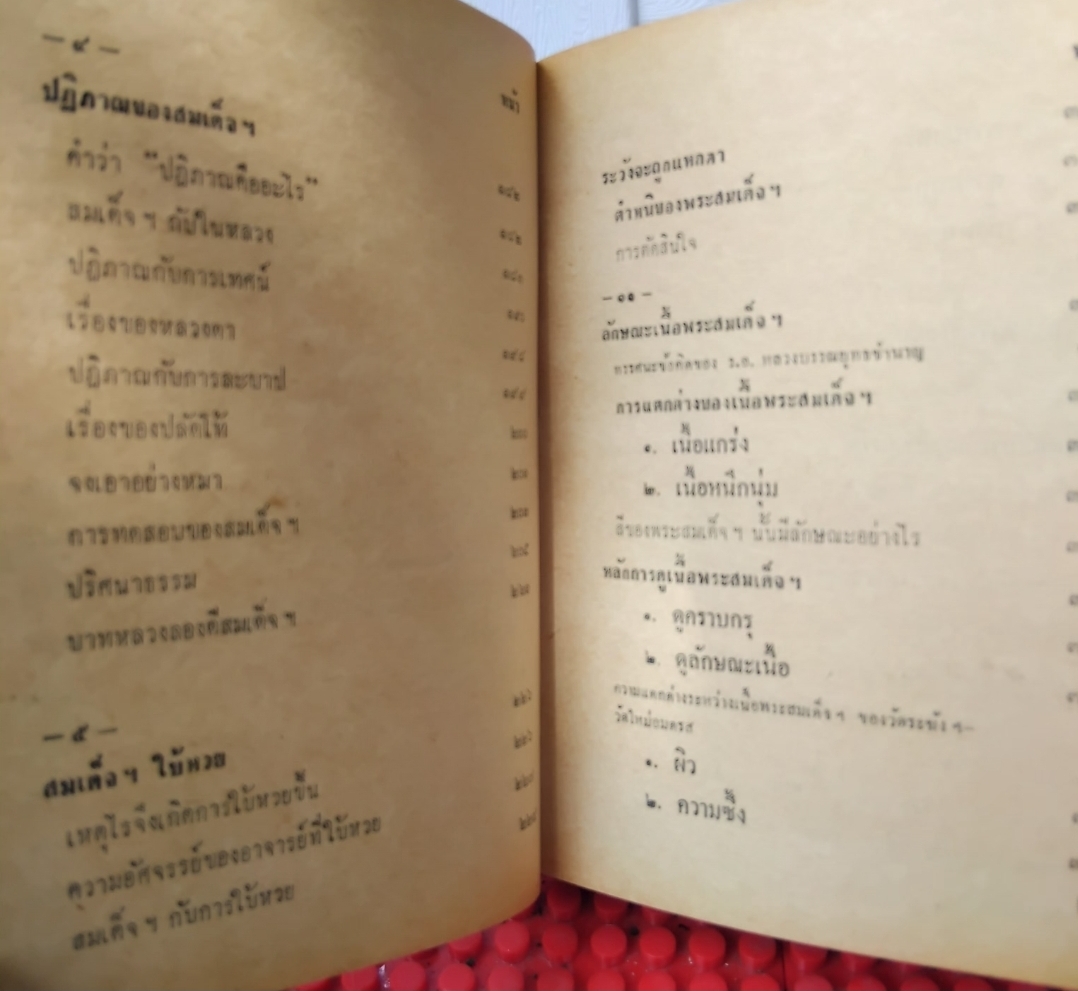 — ๔ —
หน้า
ปฏิภาณของสมเด็จฯ
คำว่า "ปฏิภาณคืออะไร" ๑๘๒
สมเด็จฯ กับในหลวง ๑๘๒
ปฏิภาณกับการเทศน์
เรื่องของหลวงตา
ปฏิภาณกับการละบาป
เรื่องของปลัดโห้
จงเอาอย่างหมา
การทดสอบของสมเด็จฯ
ปริศนาธรรม
บาทหลวงลองดีสมเด็จฯ
— ๕ —
สมเด็จฯ ใบ้หวย
เหตุไรจึงเกิดการใบ้หวยขึ้น
ความอัศจรรย์ของอาจารย์ที่ใบ้หวย
สมเด็จฯ กับการใบ้หวย
ระวังจะถูกแหกตา
ตำหนิของพระสมเด็จฯ
การตัดสินใจ
— ๑๑ —
ลักษณะเนื้อพระสมเด็จฯ
ทรรศนะข้อคิดของ ร.อ. หลวงบรรณยุทธชำนาญ
การแตกต่างของเนื้อพระสมเด็จฯ
๑. เนื้อแกร่ง
๒. เนื้อหนึกนุ่ม
สีของพระสมเด็จฯ นั้นมีลักษณะอย่างไร
หลักการดูเนื้อพระสมเด็จฯ
๑. ดูคราบกรุ
๒. ดูลักษณะเนื้อ
ความแตกต่างระหว่างเนื้อพระสมเด็จฯ ของวัดระฆังฯ—
วัดใหม่อมตรส
๑. ผิว
๒. ความซึ้ง